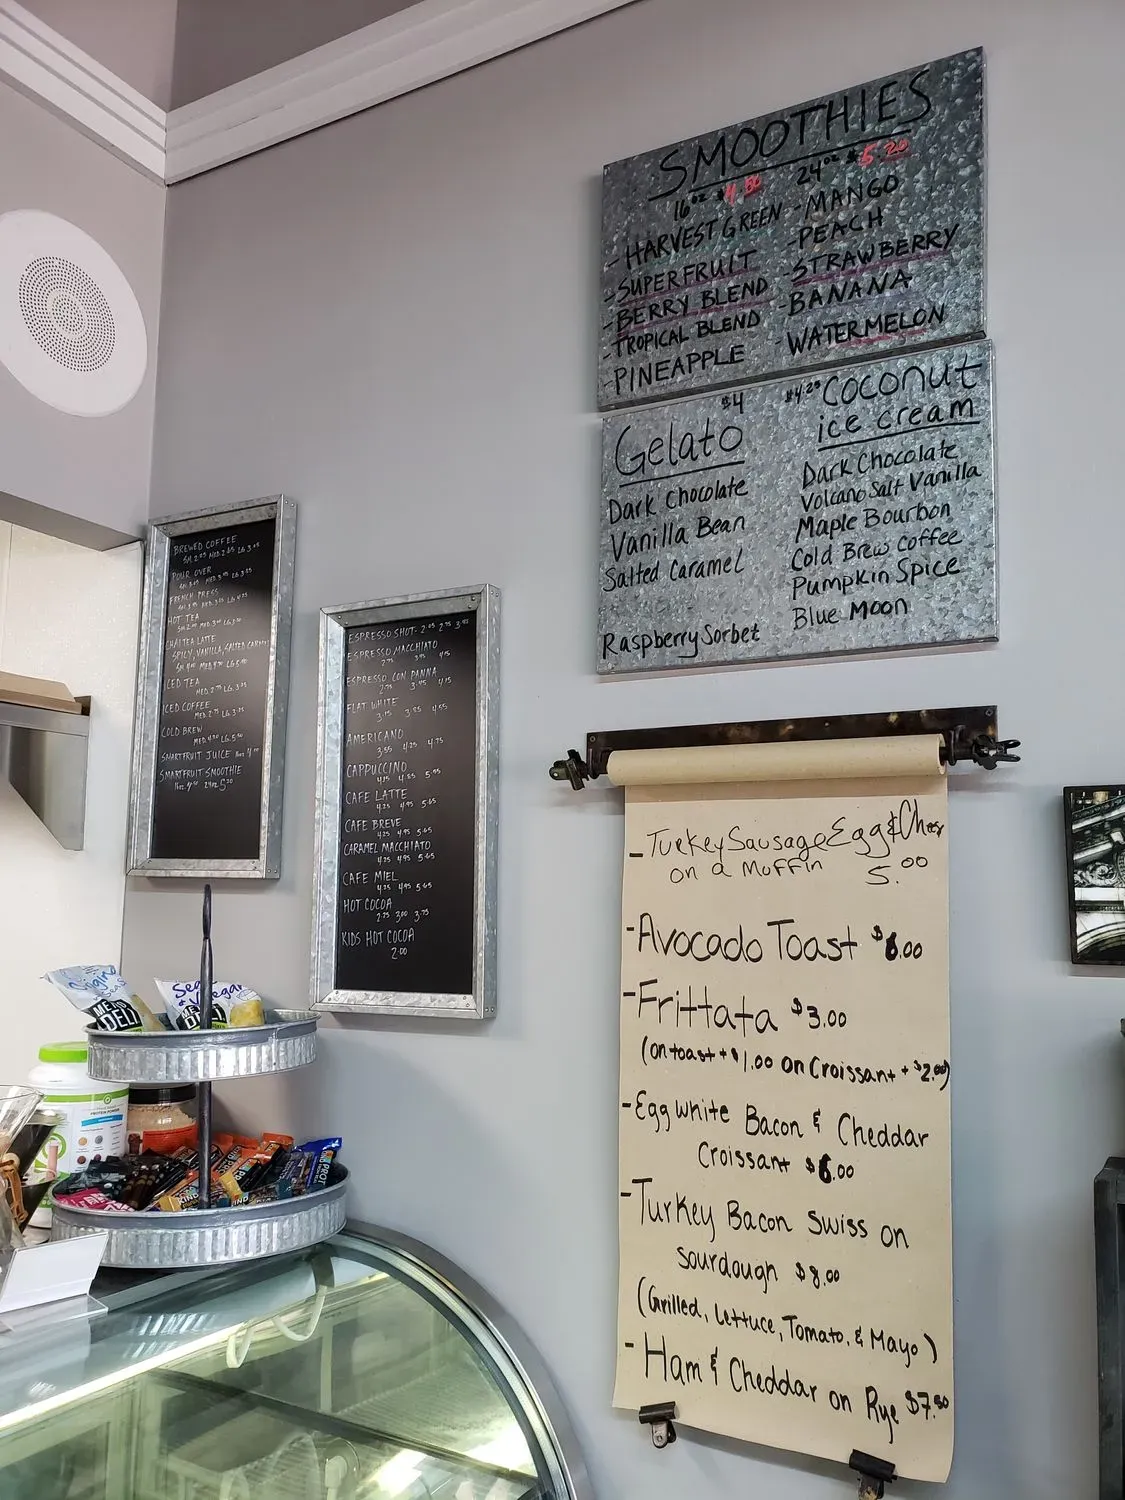 SMOOTHIES
16oz $4.50 24oz $5.20
- HARVEST GREEN
- SUPERFRUIT
- BERRY BLEND
- TROPICAL BLEND
- PINEAPPLE
- MANGO
- PEACH
- STRAWBERRY
- BANANA
- WATERMELON
$4
Gelato
Dark Chocolate
Vanilla Bean
Salted Caramel
Raspberry Sorbet
$4.25 Coconut
ice cream
Dark Chocolate
Volcano Salt Vanilla
Maple Bourbon
Cold Brew Coffee
Pumpkin Spice
Blue Moon
BREWED COFFEE
POUR OVER
FRENCH PRESS
HOT TEA
CHAI TEA LATTE
SPICY, VANILLA, SALTED CARAMEL
ICED TEA
MED. 2.75 LG. 3.25
ICED COFFEE
MED. 2.75 LG. 3.25
COLD BREW
MED. 4.50 LG. 5.50
SMARTFRUIT JUICE 16oz 4.00
SMARTFRUIT SMOOTHIE
16oz. 4.50 24oz 5.20
ESPRESSO SHOT-
ESPRESSO MACCHIATO
ESPRESSO CON PANNA
2.75 3.45 4.15
FLAT WHITE
3.15 3.85 4.55
AMERICANO
3.55 4.25 4.75
CAPPUCCINO
CAFE LATTE
4.25 4.95 5.65
CAFE BREVE
4.25 4.95 5.65
CARAMEL MACCHIATO
4.25 4.95 5.65
CAFE MIEL
4.25 4.95 5.65
HOT COCOA
2.75 3.00 3.75
KIDS HOT COCOA
2.00
- Turkey Sausage Egg & Chees
on a Muffin 5.00
- Avocado Toast $6.00
- Frittata $3.00
(on toast + $1.00 on Croissant + $2.00)
- Egg white Bacon & Cheddar
Croissant $6.00
- Turkey Bacon Swiss on
sourdough $8.00
(Grilled, Lettuce, Tomato, & Mayo)
- Ham & Cheddar on Rye $7.50
DELI
DELI
KIND